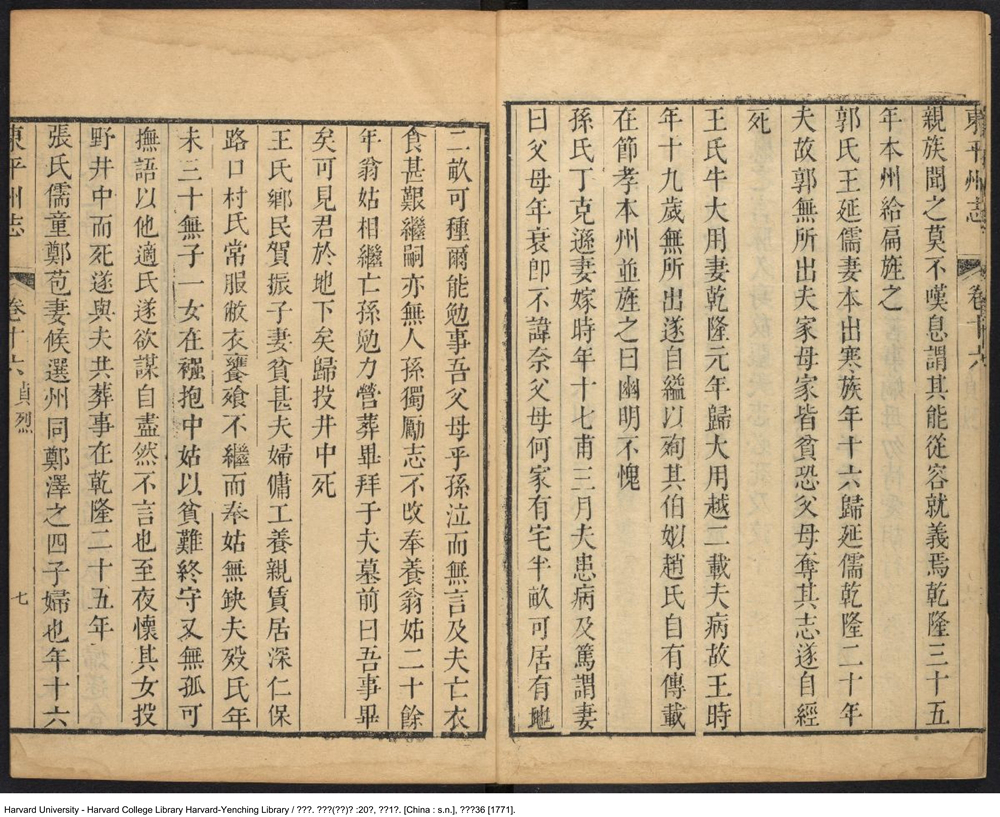 東平州志 卷十六
親族聞之莫不嘆息謂其能從容就義焉乾隆三十五
年本州給扁旌之
郭氏王延儒妻本出寒族年十六歸延儒乾隆二十年
夫故郭無所出夫家母家皆貧恐父母奪其志遂自經
死
王氏牛大用妻乾隆元年歸大用越二載夫病故王時
年十九歲無所出遂自縊以殉其伯姒趙氏自有傳載
在節孝本州並旌之曰幽明不愧
孫氏丁克遜妻嫁時年十七甫三月夫患病及篤謂妻
曰父母年衰卽不諱奈父母何家有宅半畝可居有地
二畝可種爾能勉事吾父母乎孫泣而無言及夫亡衣
食甚艱繼嗣亦無人孫獨勵志不改奉養翁姑二十餘
年翁姑相繼亡孫勉力營葬畢拜于夫墓前曰吾事畢
矣可見君於地下矣歸投井中死
王氏鄉民賀振子妻貧甚夫婦傭工養親賃居深仁保
路口村氏常服敝衣饔飧不繼而奉姑無缺夫歿氏年
未三十無子一女在襁抱中姑以貧難終守又無孤可
撫語以他適氏遂欲謀自盡然不言也至夜懷其女投
野井中而死遂與夫共葬事在乾隆二十五年
張氏儒童鄭苞妻候選州同鄭澤之四子婦也年十六
東平州志 卷十六 貞烈 七
Harvard University - Harvard College Library Harvard-Yenching Library / ???. ???(??)? :20?, ??1?. [China : s.n.], ???36 [1771].